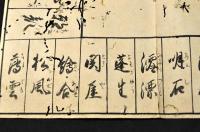 明石
澪標
蓬生
関屋
絵合
松風
薄雲